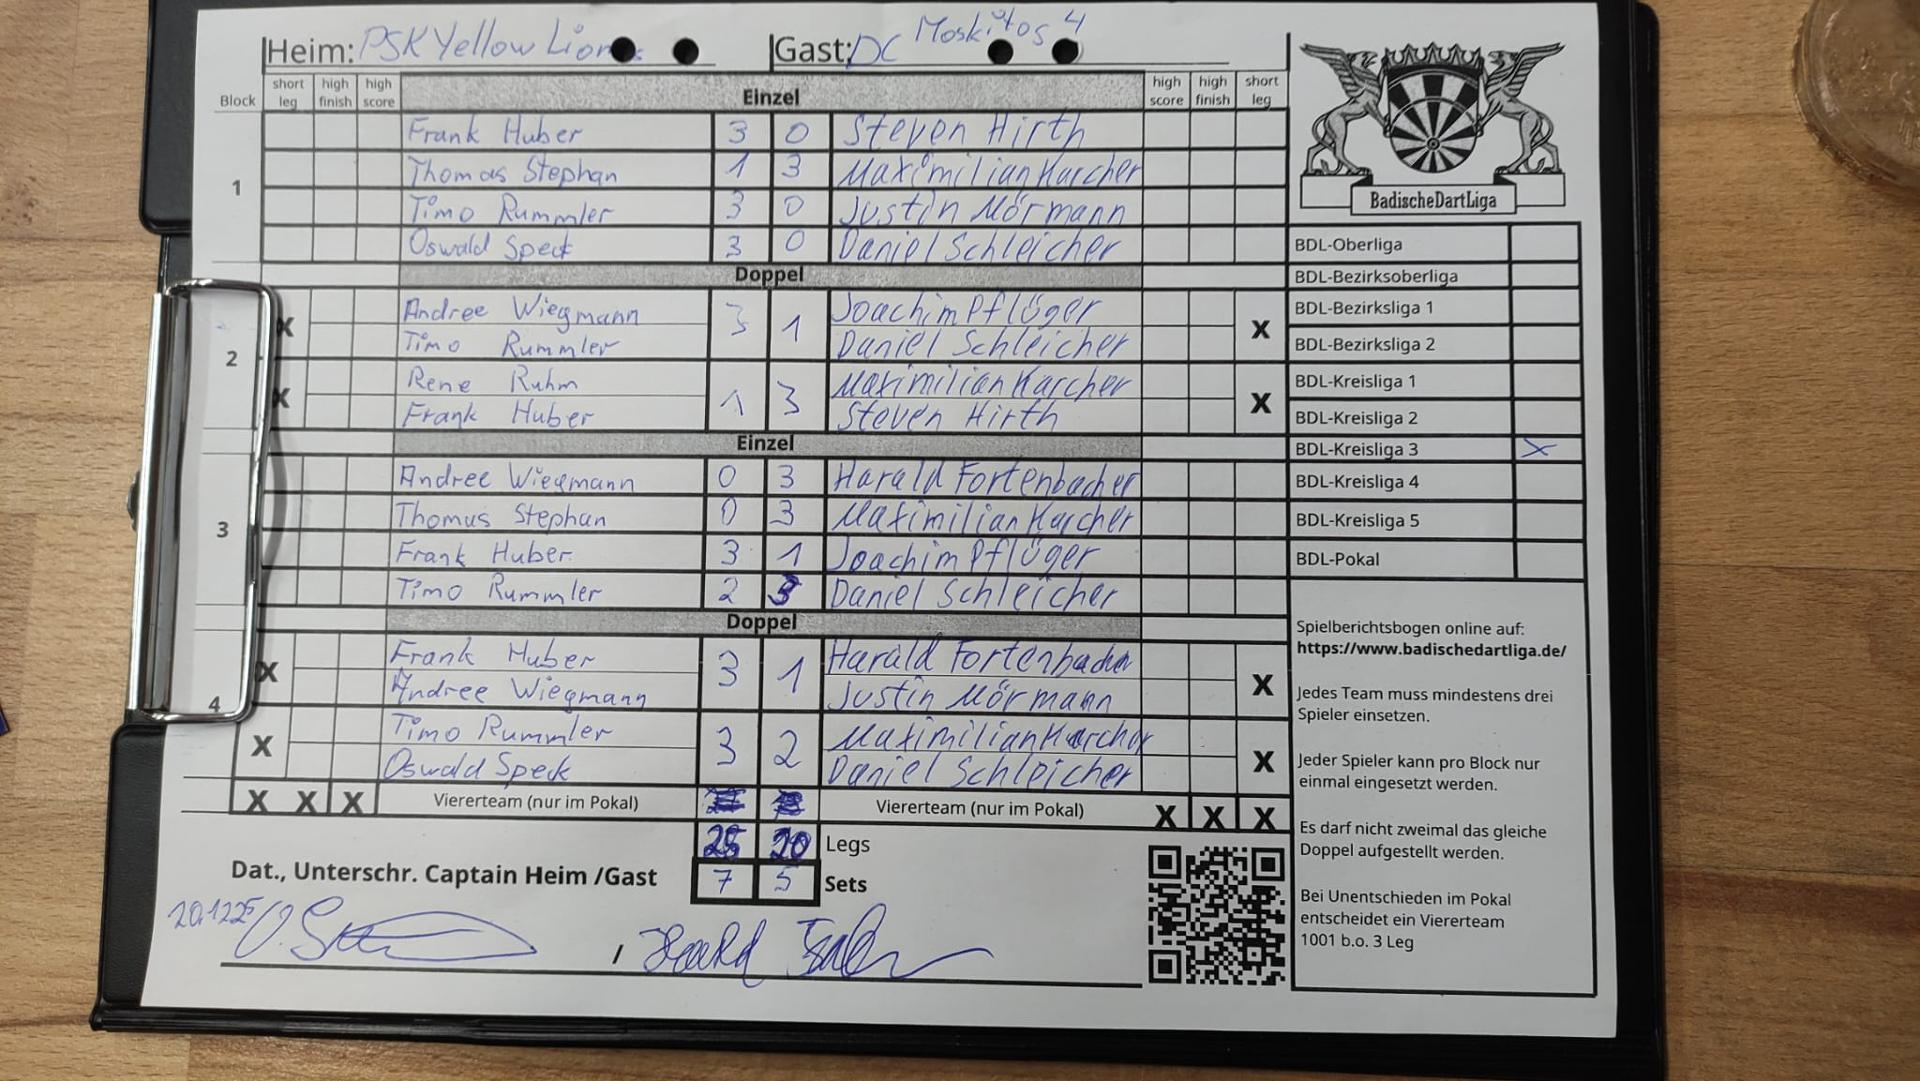 Heim: PSK Yellow Lions Gast: DC Moskitos 4
Block short leg high finish high score Einzel high score high finish short leg
1
Frank Huber 3 0 Steven Hirth
Thomas Stephan 1 3 Maximilian Karcher
Timo Rummler 3 0 Justin Mörmann
Oswald Speck 3 0 Daniel Schleicher
Doppel
2
X Andree Wiegmann 3 1 Joachim Pflüger X
Timo Rummler Daniel Schleicher
X Rene Ruhm 1 3 Maximilian Karcher X
Frank Huber Steven Hirth
Einzel
3
Andree Wiegmann 0 3 Harald Fortenbacher
Thomas Stephan 0 3 Maximilian Karcher
Frank Huber 3 1 Joachim Pflüger
Timo Rummler 2 3 Daniel Schleicher
Doppel
4
X Frank Huber 3 1 Harald Fortenbacher X
Andree Wiegmann Justin Mörmann
X Timo Rummler 3 2 Maximilian Karcher X
Oswald Speck Daniel Schleicher
X X X Viererteam (nur im Pokal) Viererteam (nur im Pokal) X X X
25 20 Legs
7 5 Sets
Dat., Unterschr. Captain Heim /Gast
20.12.25 /
BadischeDartLiga
BDL-Oberliga
BDL-Bezirksoberliga
BDL-Bezirksliga 1
BDL-Bezirksliga 2
BDL-Kreisliga 1
BDL-Kreisliga 2
BDL-Kreisliga 3 X
BDL-Kreisliga 4
BDL-Kreisliga 5
BDL-Pokal
Spielberichtsbogen online auf:
https://www.badischedartliga.de/
Jedes Team muss mindestens drei
Spieler einsetzen.
Jeder Spieler kann pro Block nur
einmal eingesetzt werden.
Es darf nicht zweimal das gleiche
Doppel aufgestellt werden.
Bei Unentschieden im Pokal
entscheidet ein Viererteam
1001 b.o. 3 Leg